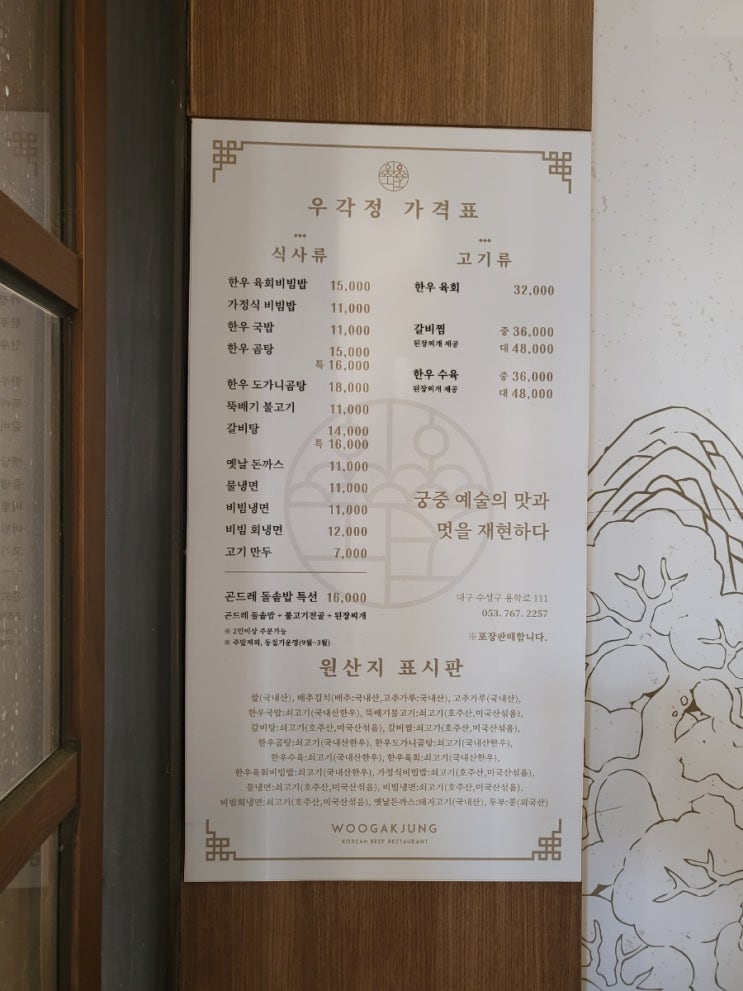 우각정 가격표
식사류
한우 육회비빔밥 15,000
가정식 비빔밥 11,000
한우 국밥 11,000
한우 곰탕 15,000
특 16,000
한우 도가니곰탕 18,000
뚝배기 불고기 11,000
갈비탕 14,000
특 16,000
옛날 돈까스 11,000
물냉면 11,000
비빔냉면 11,000
비빔 회냉면 12,000
고기 만두 7,000
곤드레 돌솥밥 특선 16,000
곤드레 돌솥밥 + 불고기전골 + 된장찌개
※ 2인이상 주문가능
※ 주말제외, 동절기운영(9월~3월)
고기류
한우 육회 32,000
갈비찜 중 36,000
된장찌개 제공 대 48,000
한우 수육 중 36,000
된장찌개 제공 대 48,000
궁중 예술의 맛과
멋을 재현하다
대구 수성구 용학로 111
053. 767. 2257
※포장판매합니다.
원산지 표시판
쌀(국내산), 배추김치(배추:국내산,고추가루:국내산), 고추가루(국내산),
한우국밥:쇠고기(국내산한우), 뚝배기불고기:쇠고기(호주산,미국산섞음),
갈비탕:쇠고기(호주산,미국산섞음), 갈비찜:쇠고기(호주산,미국산섞음),
한우곰탕:쇠고기(국내산한우), 한우도가니곰탕:쇠고기(국내산한우),
한우수육:쇠고기(국내산한우), 한우육회:쇠고기(국내산한우),
한우육회비빔밥:쇠고기(국내산한우), 가정식비빔밥:쇠고기(호주산,미국산섞음),
물냉면:쇠고기(호주산,미국산섞음), 비빔냉면:쇠고기(호주산,미국산섞음),
비빔회냉면:쇠고기(호주산,미국산섞음), 옛날돈까스:돼지고기(국내산), 두부:콩(외국산)
WOOGAKJUNG
KOREAN BEEF RESTAURANT